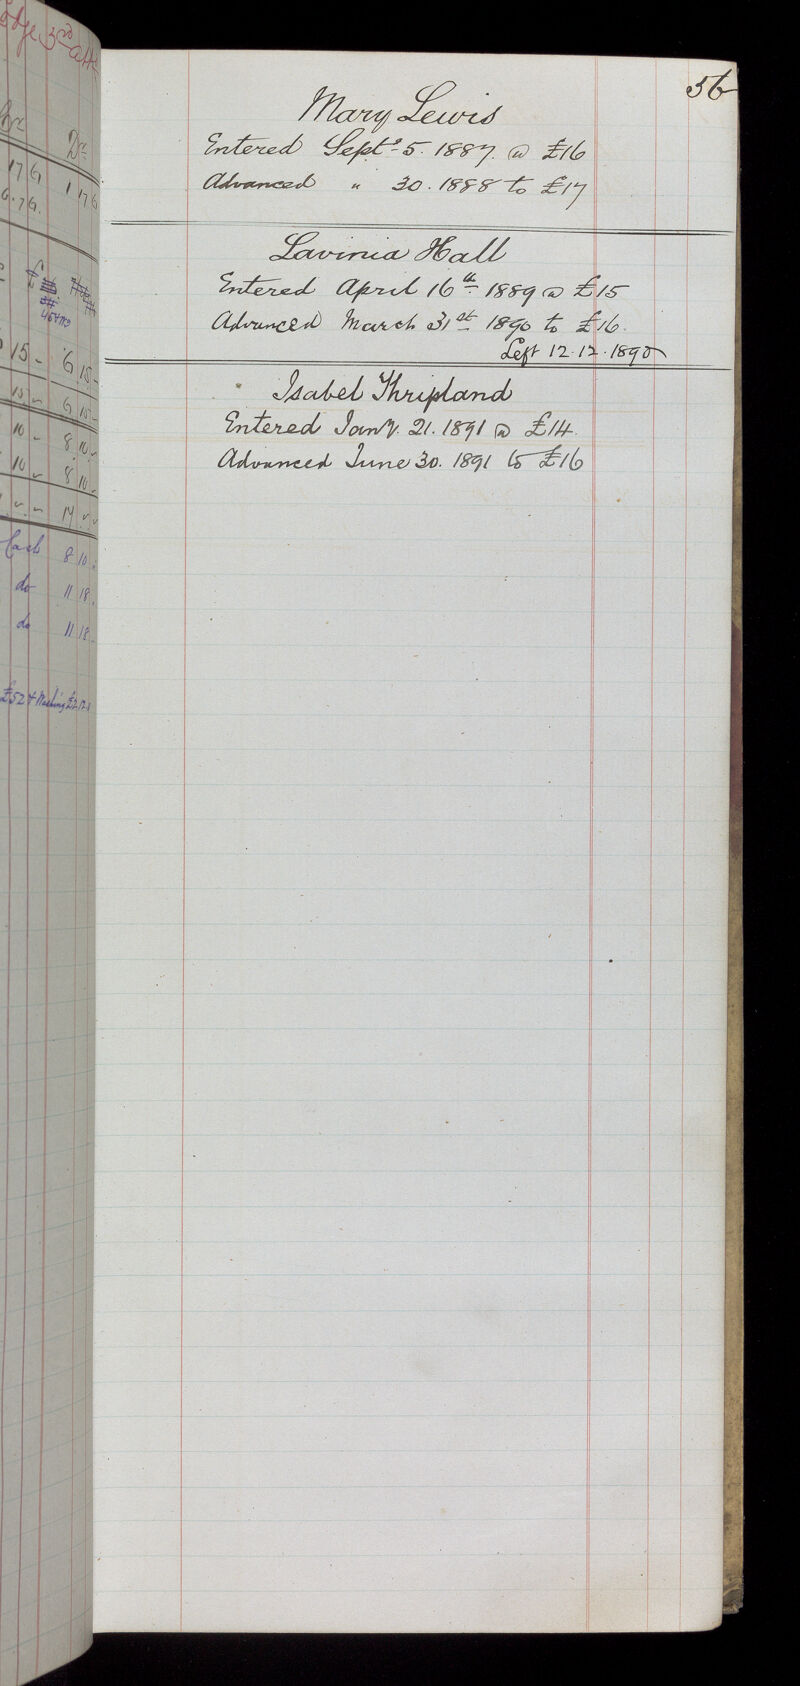 56
Mary Lewis
Entered Sept. 5. 1887. @ £16
Advanced " 30. 1888 to £17
Lavinia Hall
Entered April 16th 1889 @ £15
Advanced March 31st 1890 to £16.
Left 12.12.1890
Isabel Thripland
Entered Jany. 21. 1891 @ £14
Advanced June 30. 1891 to £16
3rd
Dr
17 6 1 17 6
6 . 7 6 .
15 - 6 15 -
15 - 6 15 -
10 - 8 10 -
10 - 8 10 -
17 - -
Cash 8 10 -
do 11 18 -
do 11 18 -
£52 + Washing